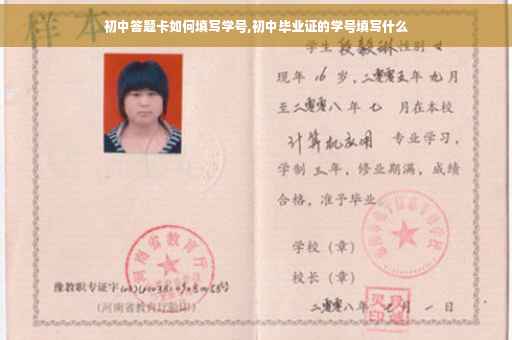 初中答题卡如何填写学号,初中毕业证的学号填写什么
样本
学生 段毅琳 性别 女
现年 16 岁,二零零五年 九月
至二零零八年 七 月在本校
计算机应用 专业学习,
学制 三年,修业期满,成绩
合格,准予毕业
学校(章)
校长(章)
二零零八年 七月 一 日
河南省教育厅
豫教职专证字
(河南省教育厅验印)